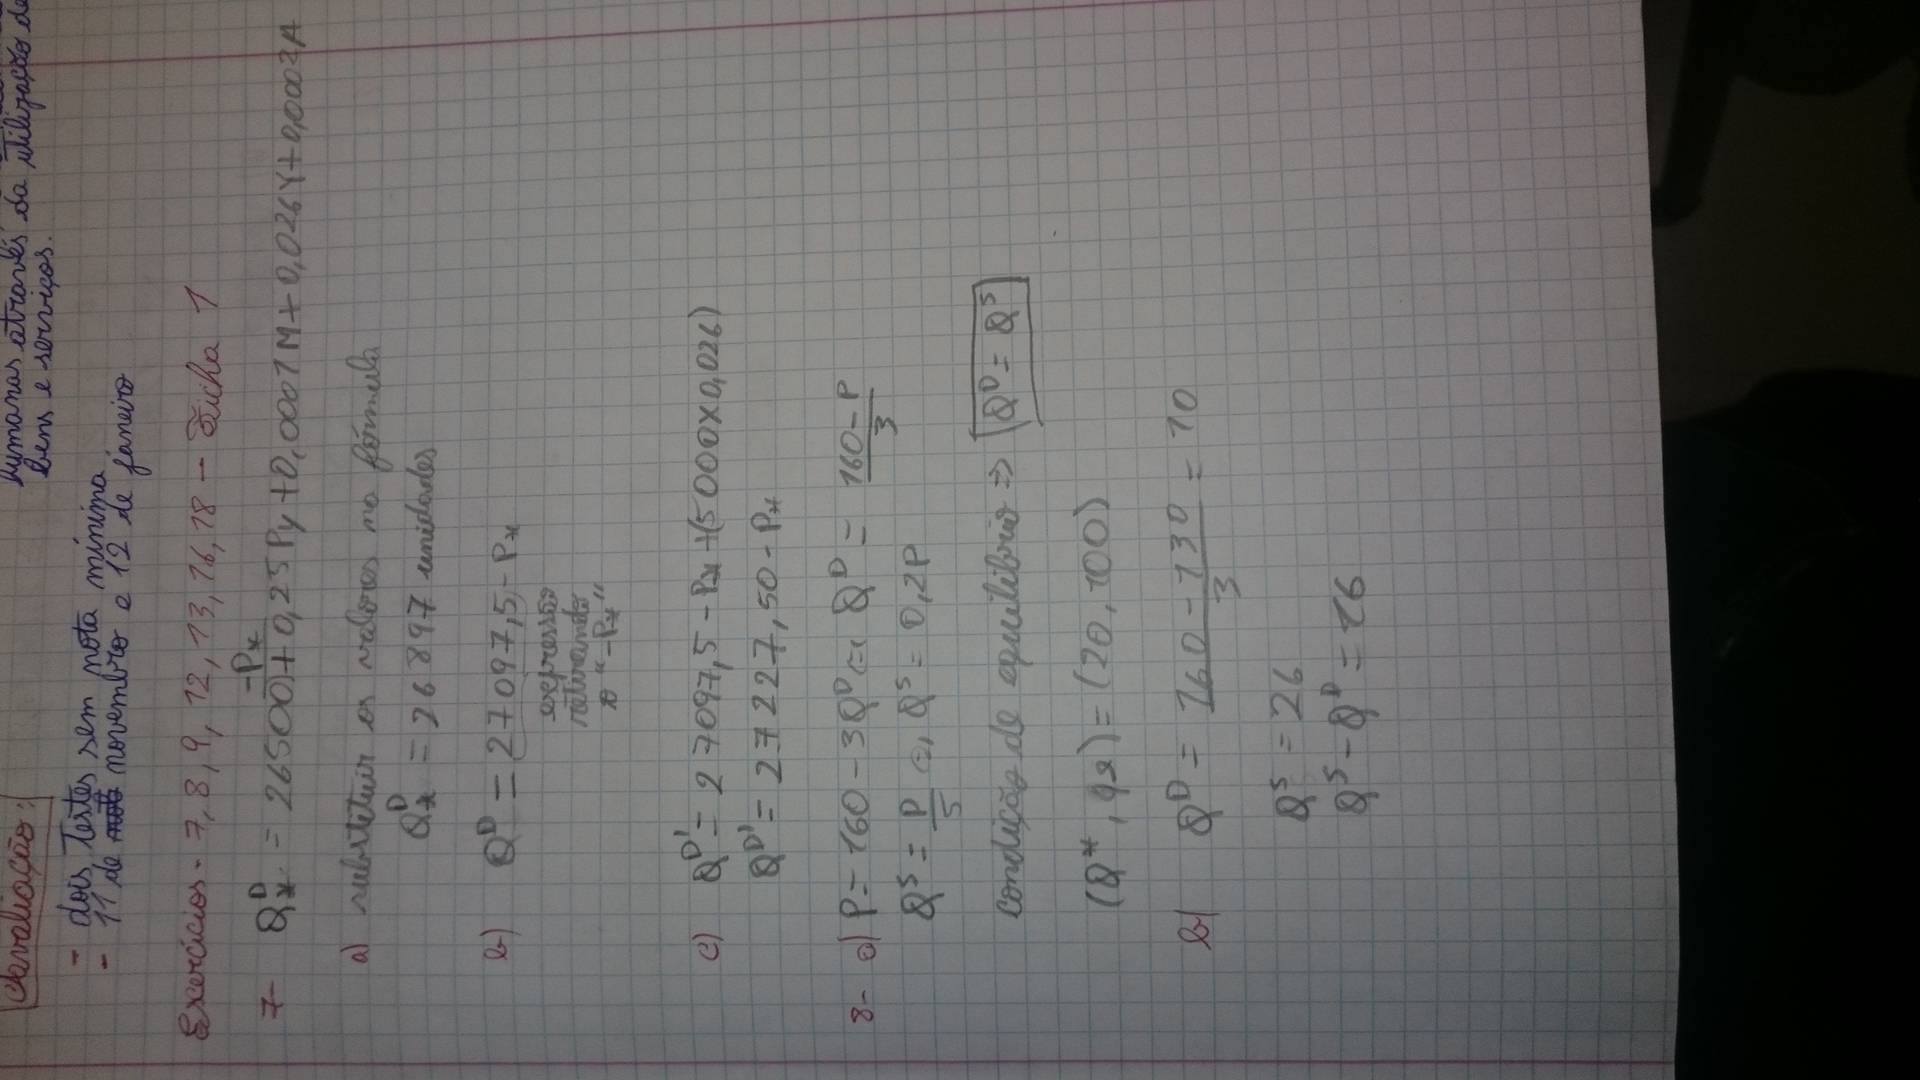 humanas através da utilização de
bens e serviços.
Avaliação:
- dois testes sem nota mínima
- 11 de novembro e 12 de janeiro
Exercícios - 7, 8, 9, 12, 13, 16, 18 - Ficha 1
7- Qxᴰ = 26500 - Px + 0,25Py + 0,0001M + 0,026Y + 0,0002A
a) substituir os valores na fórmula
Qxᴰ = 26897 unidades
b) Qᴰ = 27097,5 - Px
expressão
retirando
o "-Px"
c) Qᴰ' = 27097,5 - Px + (5000 x 0,026)
Qᴰ' = 27227,50 - Px
8- a) P = 160 - 3Qᴰ (=) Qᴰ = (160 - P)/3
Qˢ = P/5 (=) Qˢ = 0,2P
Condição de equilíbrio => Qᴰ = Qˢ
(Q*, P*) = (20, 100)
b) Qᴰ = (160 - 130)/3 = 10
Qˢ = 26
Qˢ - Qᴰ = 16